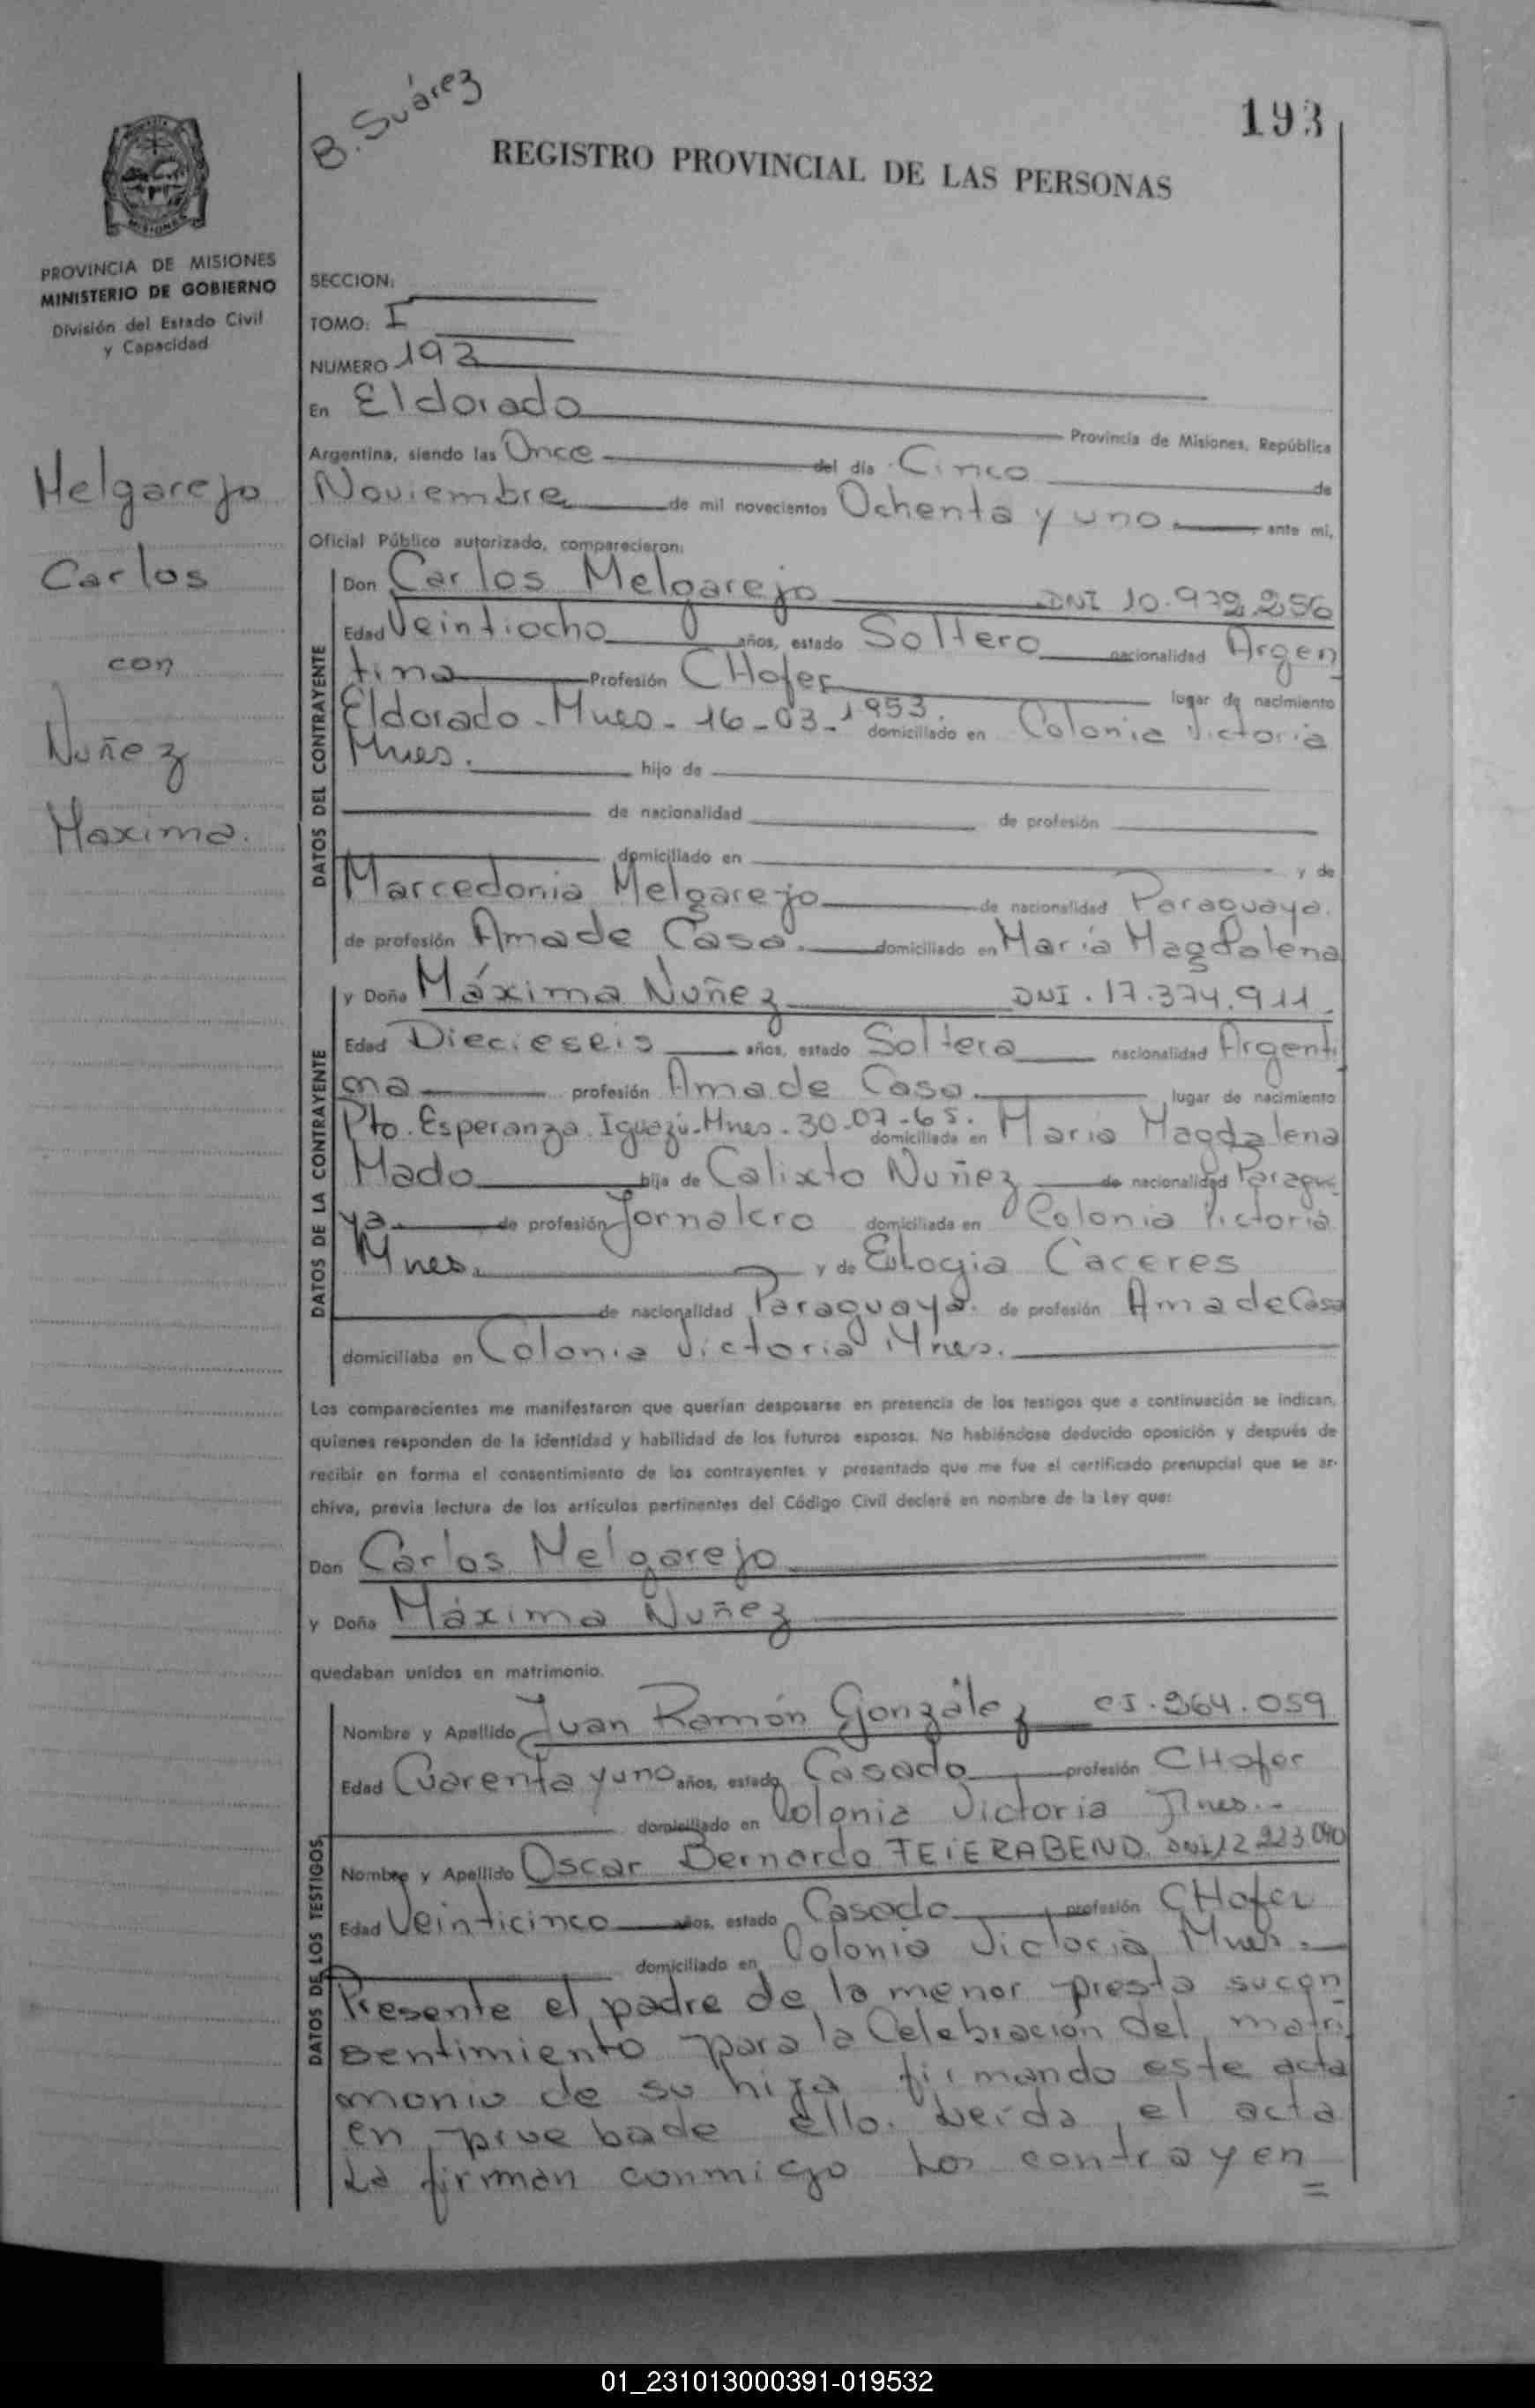 B. Suárez
193
REGISTRO PROVINCIAL DE LAS PERSONAS
MISIONES
PROVINCIA DE MISIONES
MINISTERIO DE GOBIERNO
División del Estado Civil
y Capacidad
SECCION:
TOMO: I
NUMERO 193
En Eldorado Provincia de Misiones, República
Argentina, siendo las Once del día Cinco de
Noviembre de mil novecientos Ochenta y uno. ante mi,
Oficial Público autorizado, comparecieron:
Melgarejo
Carlos
con
Nuñez
Maxima.
DATOS DEL CONTRAYENTE
Don Carlos Melgarejo DNI 10.972.256
Edad Veintiocho años, estado Soltero nacionalidad Argen
tina Profesión CHofer lugar de nacimiento
Eldorado - Mnes - 16-03-1953. domiciliado en Colonia Victoria
Mnes. hijo de
de nacionalidad de profesión
domiciliado en y de
Marcedonia Melgarejo de nacionalidad Paraguaya.
de profesión Ama de Casa. domiciliado en María Magdalena
DATOS DE LA CONTRAYENTE
y Doña Máxima Nuñez DNI. 17.374.911.
Edad Diecieseis años, estado Soltera nacionalidad Argenti
na profesión Ama de Casa. lugar de nacimiento
Pto. Esperanza. Iguazú-Mnes. 30-07-65. domiciliada en Maria Magdalena
Mado hija de Calixto Nuñez de nacionalidad Paragua
ya. de profesión Jornalero domiciliada en Colonia Victoria
Mnes. y de Eulogia Caceres
de nacionalidad Paraguaya. de profesión Ama de Casa
domiciliaba en Colonia Victoria Mnes.
Los comparecientes me manifestaron que querían desposarse en presencia de los testigos que a continuación se indican,
quienes responden de la identidad y habilidad de los futuros esposos. No habiéndose deducido oposición y después de
recibir en forma el consentimiento de los contrayentes y presentado que me fue el certificado prenupcial que se ar-
chiva, previa lectura de los artículos pertinentes del Código Civil declaré en nombre de la Ley que:
Don Carlos Melgarejo
y Doña Máxima Nuñez
quedaban unidos en matrimonio.
DATOS DE LOS TESTIGOS
Nombre y Apellido Juan Ramón González CI. 264.059
Edad Cuarenta y uno años, estado Casado profesión CHofer
domiciliado en Colonia Victoria Mnes.-
Nombre y Apellido Oscar Bernardo FEIERABEND. DNI 12.223.040
Edad Veinticinco años, estado Casado profesión CHofer
domiciliado en Colonia Victoria Mnes.-
Presente el padre de la menor presta su con
sentimiento para la Celebración del matri
monio de su hija firmando este acta
en prueba de ello. Leída el acta
La firman conmigo Los contrayen
=
01_231013000391-019532